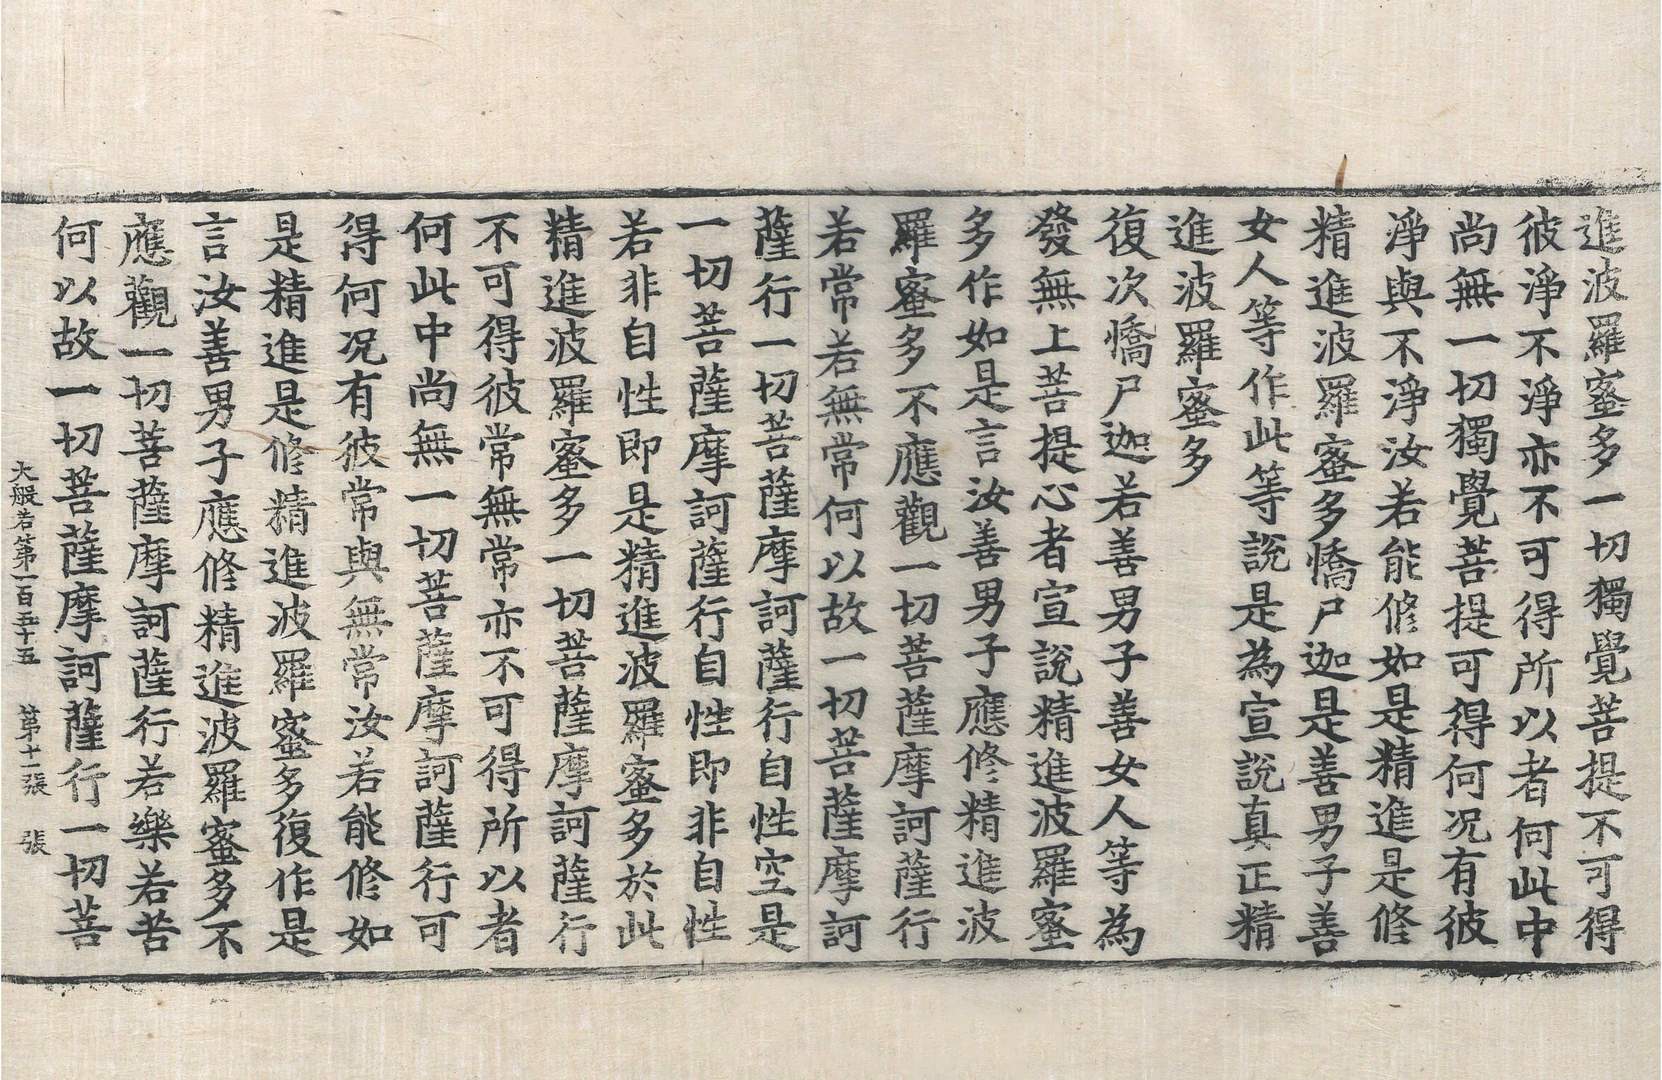 進波羅蜜多一切獨覺菩提不可得
彼淨不淨亦不可得所以者何此中
尚無一切獨覺菩提可得何况有彼
淨與不淨汝若能修如是精進是修
精進波羅蜜多憍尸迦是善男子善
女人等作此等說是為宣說真正精
進波羅蜜多
復次憍尸迦若善男子善女人等為
發無上菩提心者宣說精進波羅蜜
多作如是言汝善男子應修精進波
羅蜜多不應觀一切菩薩摩訶薩行
若常若無常何以故一切菩薩摩訶
薩行一切菩薩摩訶薩行自性空是
一切菩薩摩訶薩行自性即非自性
若非自性即是精進波羅蜜多於此
精進波羅蜜多一切菩薩摩訶薩行
不可得彼常無常亦不可得所以者
何此中尚無一切菩薩摩訶薩行可
得何况有彼常與無常汝若能修如
是精進是修精進波羅蜜多復作是
言汝善男子應修精進波羅蜜多不
應觀一切菩薩摩訶薩行若樂若苦
何以故一切菩薩摩訶薩行一切菩
大般若第一百五十五 第十一張 張